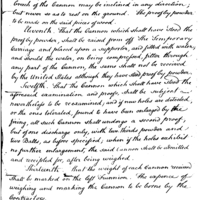 of the Cannon may be inclined in any direction,
but never so as to rest on the ground. The proof by powder
to be made on the said pieces of wood.
Eleventh That the Cannon which shall have stood the
proof by powder, shall be raised from off the Temporary
carriage and placed upon a supporter, and filled with water,
and should the water, on being compressed, filter through
any part of the Cannon, the same shall not be received
by the United States although they have stood proof by powder.
Twelfth That the Cannon which shall have stood the
aforesaid examination and proofs, shall be subject
nevertheless to be reexamined, and if new holes are detected,
or the ones tolerated, found to have been enlarged by the
firing, all such Cannon shall undergo a second proof,
of one discharge only, with two thirds powder and
two Balls, as before specified; when if the holes exhibit
no further enlargement, the said Cannon shall be admitted
and receipted for, after being weighed.
Thirteenth That the weight of each Cannon received
shall be marked on the left Trunnion, the expence of
weighing and marking the Cannon to be borne by the
contractor